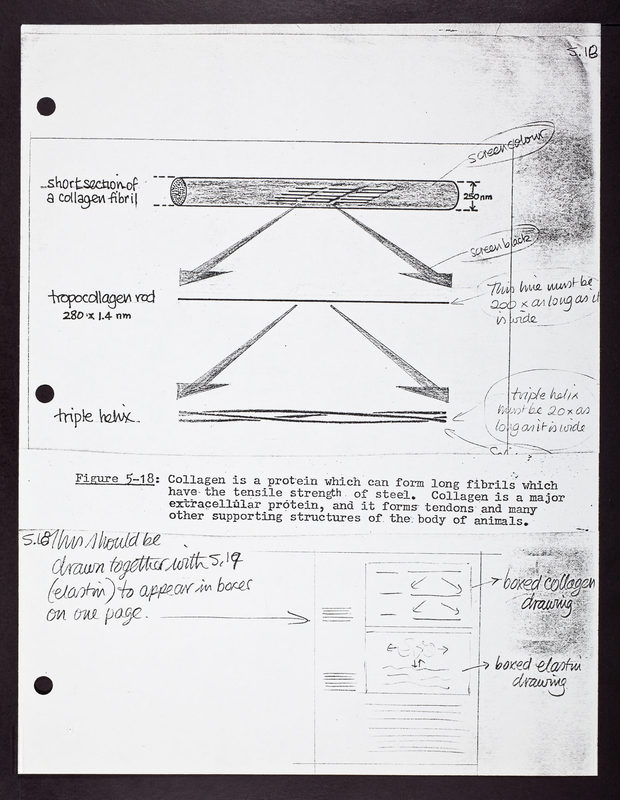 5.18
screen colour
short section of
a collagen fibril
250 nm
screen black
tropocollagen rod
280 x 1.4 nm
This line must be
200 x as long as it
is wide
triple helix
triple helix
must be 20x as
long as it is wide
Figure 5-18: Collagen is a protein which can form long fibrils which
have the tensile strength of steel. Collagen is a major
extracellular protein, and it forms tendons and many
other supporting structures of the body of animals.
5.18 This should be
drawn together with 5.19
(elastin) to appear in boxes
on one page.
boxed collagen
drawing
boxed elastin
drawing